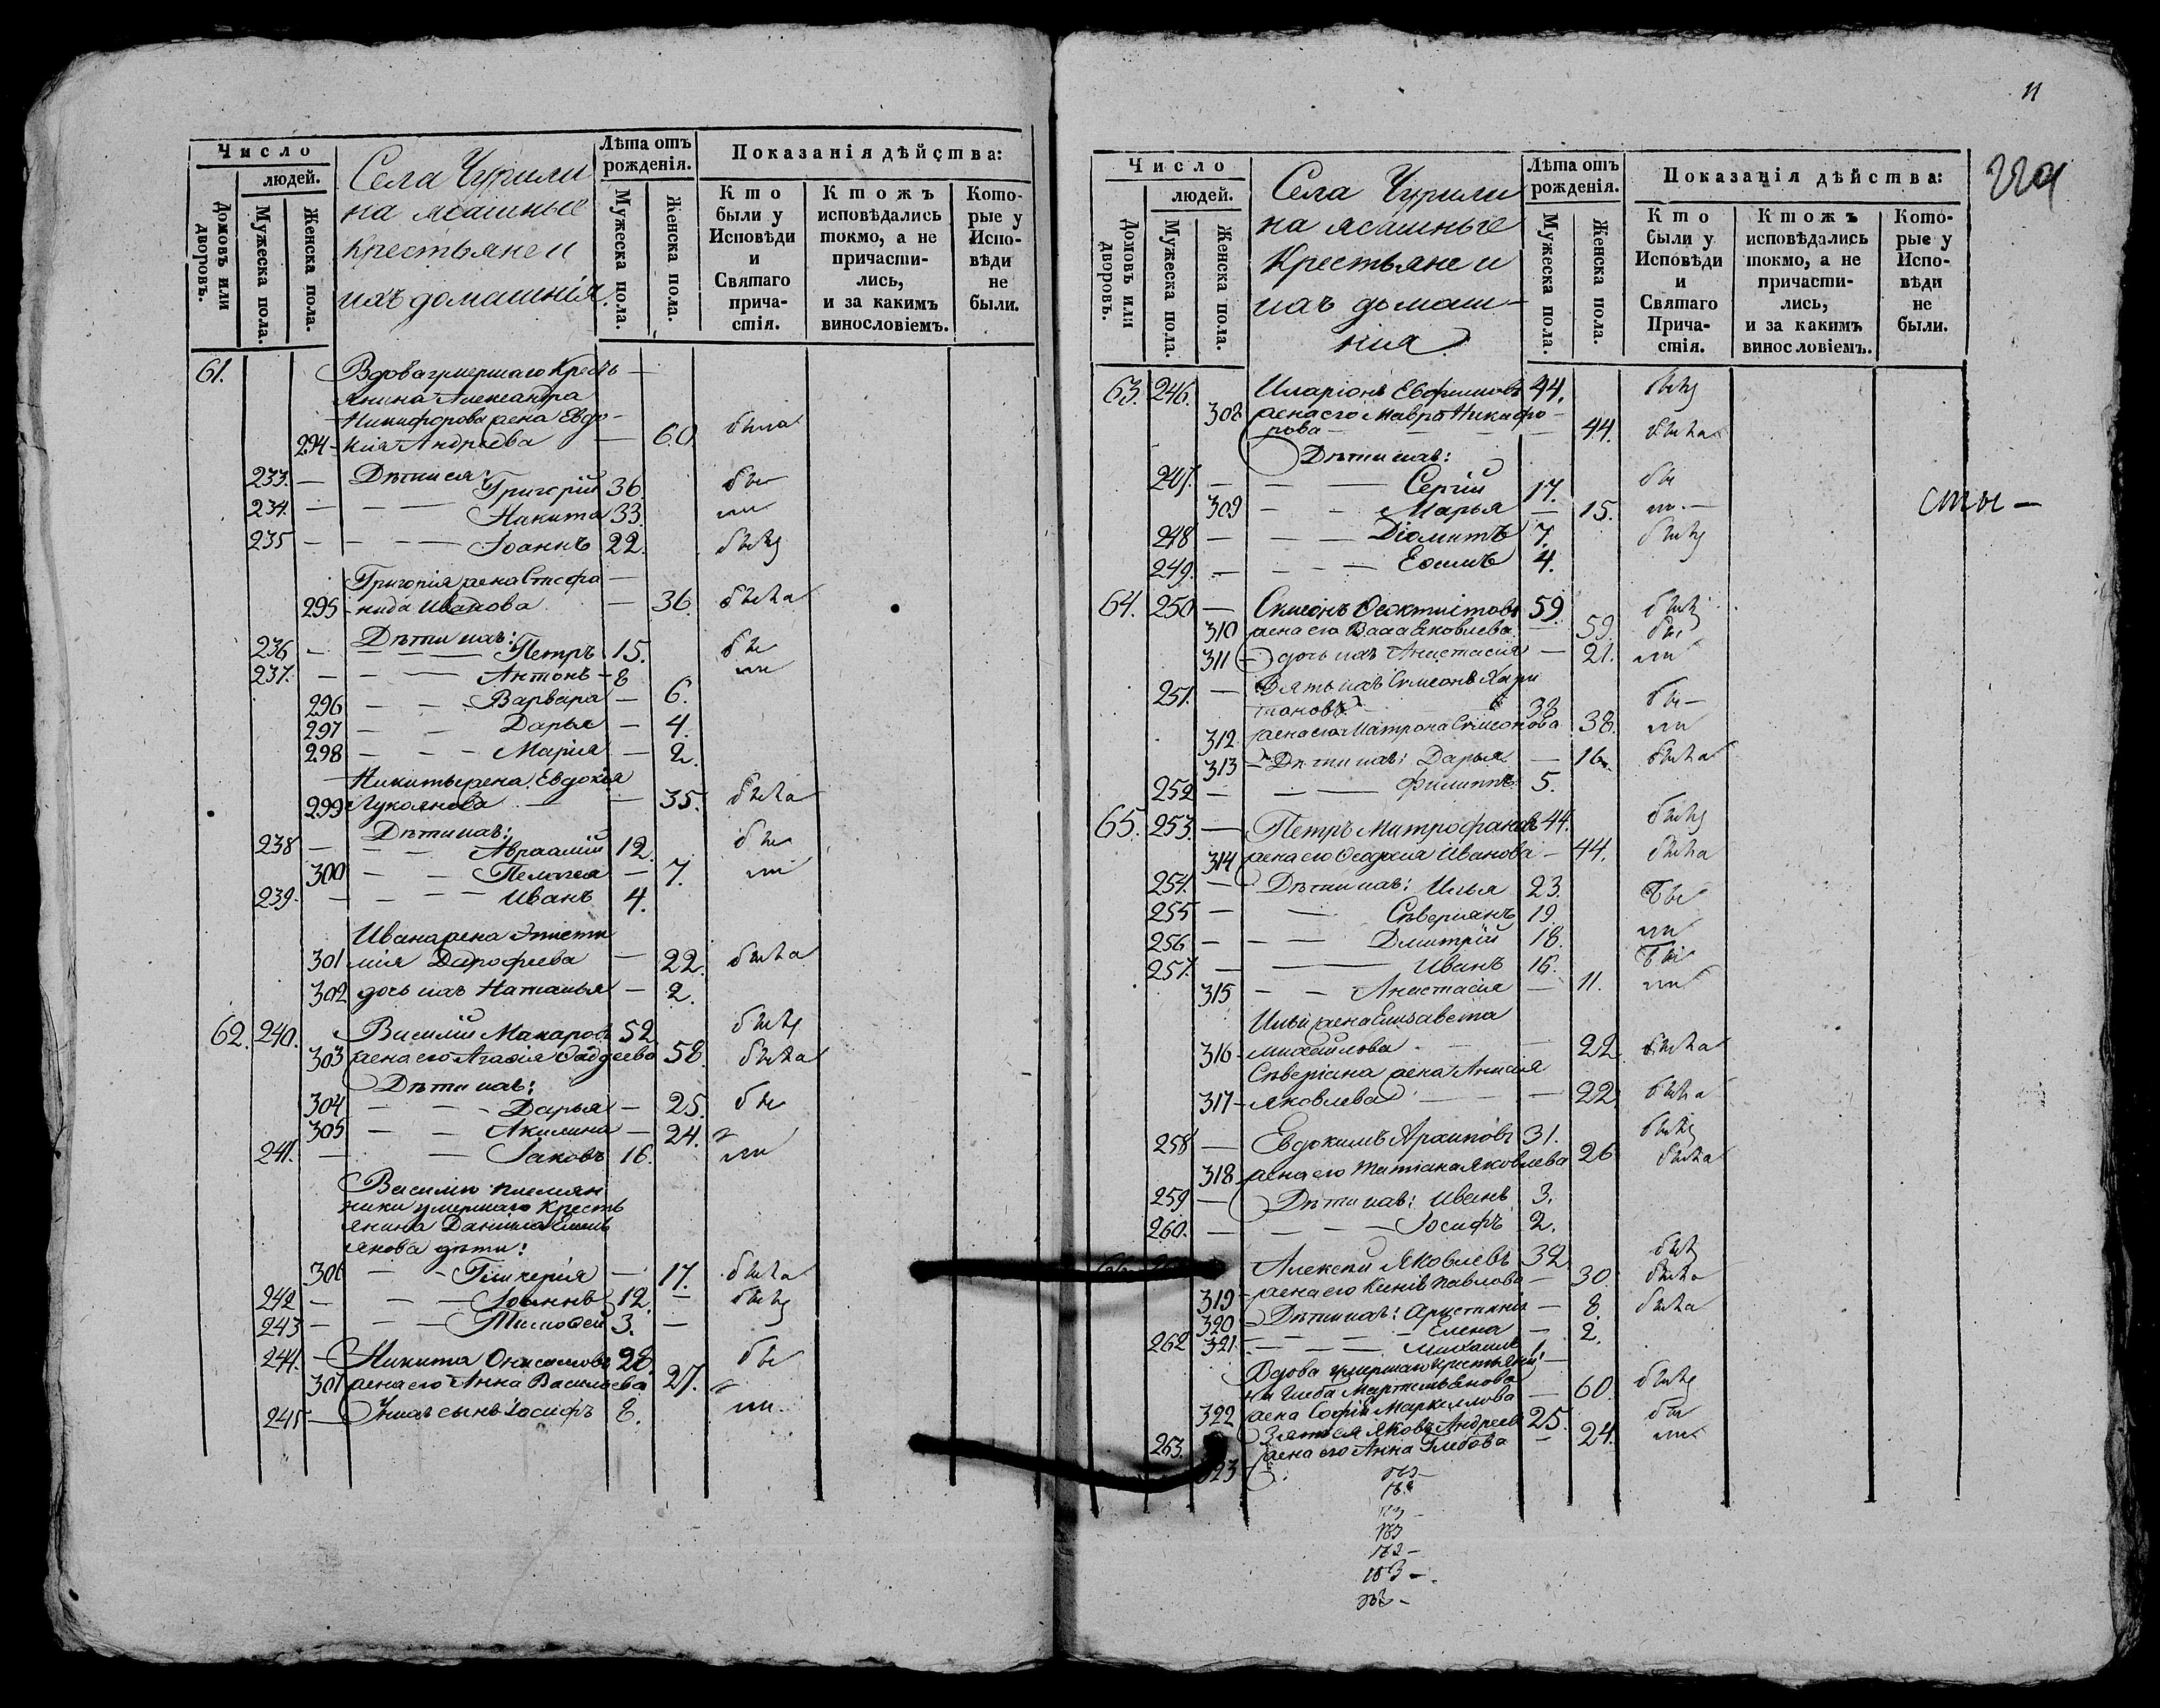 Число
людей.
Домовъ или дворовъ.
Мужеска пола.
Женска пола.
Села Чурили
на ясашныѣ
Крестьяне и
ихъ домашнія.
Лѣта отъ рожденія.
Мужеска пола.
Женска пола.
Показанія дѣйства:
Кто были у Исповѣди и Святаго причастія.
Ктожъ исповѣдались токмо, а не причастились, и за какимъ винословіемъ.
Которые у Исповѣди не были.
61. Вдова умершаго Кресть
янина Александра
Никифорова жена Евдо-
294 кия Андреева — 60. была
233. — Дѣти ея Григорій 36. бы
234. — Никита 33. ли
235 — Іоаннъ 22. былъ
Григорія жена Стефа
295 нида Иванова — 36. была
Дѣти ихъ:
236 — Петръ 15. бы
237. — Антонъ 8 ли
296 — Варвара — 6.
297 — Дарья — 4.
298 — Марія — 2.
Никиты жена Евдокія
299 Лукоянова — 35. была
Дѣти ихъ:
238 — Авраамій 12. бы
300 — Пелагея — 7. ли
239. — Иванъ 4.
Ивана жена Эписти
301 мія Дорофеева — 22. была
302 дочь ихъ Наталья — 2.
62. 240. Василій Макаровъ 52 былъ
303 жена его Агафія Фаддеева 58. была
Дѣти ихъ:
304 — Дарья — 25. бы
305 — Акилина — 24.
241. — Іаковъ 16. ли
Василію племян
ники умершаго Кресть
янина Даніила Емель
янова дѣти:
306 — Гликерія — 17. была
242 — Іоаннъ 12. — былъ
243 — Тимоѳей 3. —
244. — Никита Онисимовъ 28 бы
307 жена его Анна Васильева 27.
245 — У нихъ сынъ Іосифъ 8. ли
11
229
Число
людей.
Домовъ или дворовъ.
Мужеска пола.
Женска пола.
Села Чурили
на ясашныѣ
Крестьяне и
ихъ домаш-
нія
Лѣта отъ рожденія.
Мужеска пола.
Женска пола.
Показанія дѣйства:
Кто были у Исповѣди и Святаго Причастія.
Ктожъ исповѣдались токмо, а не причастились, и за какимъ винословіемъ.
Которые у Исповѣди не были.
63. 246. Иларіонъ Евфимовъ 44. былъ
308 жена его Мавра Никифо-
рова — 44. была
Дѣти ихъ:
247. — Сергій 17. бы
309 — Марья — 15. ли —
сты —
248 — Діомитъ 7. былъ
249. — Ефимъ 4.
64. 250 — Симеонъ Феоктистовъ 59. былъ
310 жена его Васса Яковлева — 59. бы
311 дочь ихъ Анастасія — 21. ли
251. — Зять ихъ Симеонъ Хари
тоновъ 38 бы —
312 жена его Матрона Симеонова 38. ли
313 — Дѣти ихъ: Дарья — 16. была
252 — Филиппъ 5.
65. 253. — Петръ Митрофановъ 44. былъ
314 жена его Иванова — 44. была
254. — Дѣти ихъ: Илья 23. бы
255 — Северіянъ 19.
256 — Дмитрій 18. ли
257. — Иванъ 16. бы
315 — Анастасія — 11. ли
Ильи жена Елизавета
316 Михайлова — 22 была
Северіана жена Анисія
317 Яковлева — 22. была
258 — Евдокимъ Архиповъ 31. былъ
318 жена его Татіана Яковлева 26 была
259 — Дѣти ихъ: Иванъ 3.
260. — Іосифъ 2.
Алексѣй Яковлевъ 32. былъ
319 жена его Ксенія Павлова — 30. была
320 Дѣти ихъ: — 8. была
321. — Елена — 2.
262 Михаилъ 1
Вдова умершаго крестьяни-
на Глеба Мартемьянова
322 жена Софія Маркеллова — 60. былъ
263. Зять ея Яковъ Андреевъ 25. бы
323 жена его Анна Глебова — 24. ли